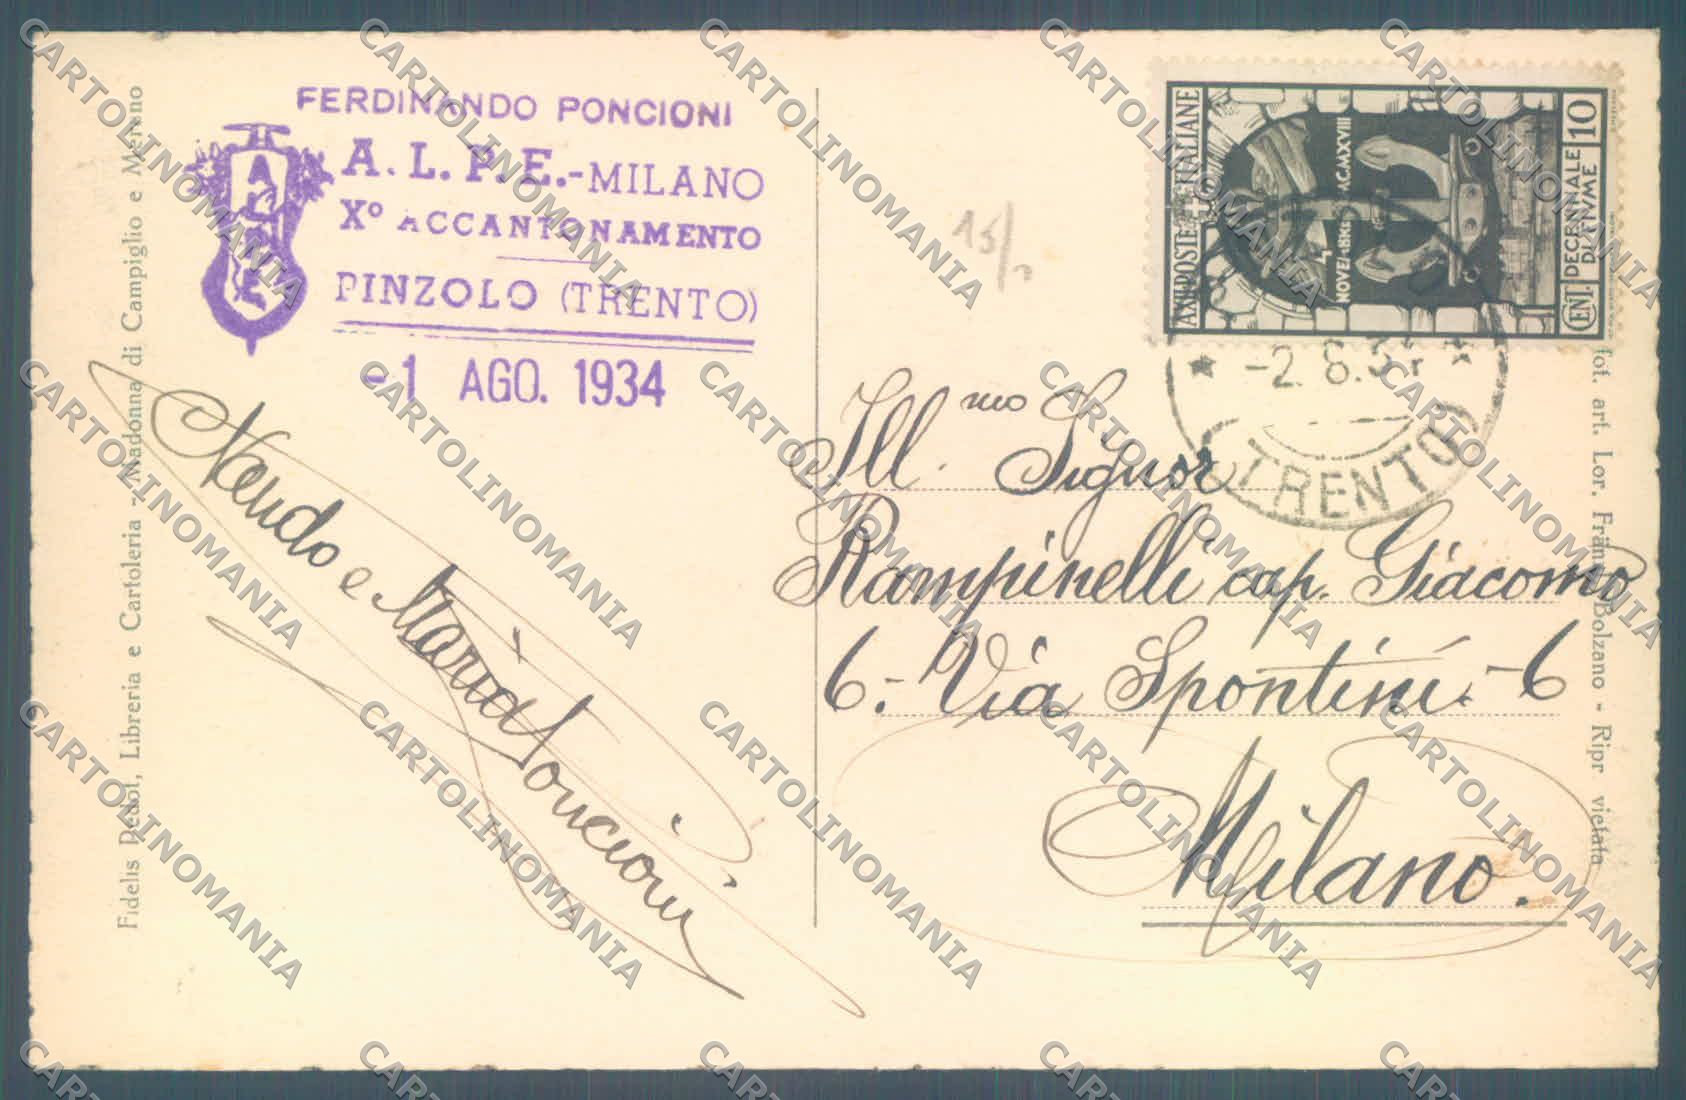 FERDINANDO PONCIONI
A. L. P. E. - MILANO
Xº ACCANTONAMENTO
PINZOLO (TRENTO)
-1 AGO. 1934
Nando e Maria Poncioni
Fidelis Dedot, Libreria e Cartoleria - Madonna di Campiglio e Merano
15/
AXII POSTE ITALIANE
DECENNALE
DI FIUME
CENT. 10
-2.8.34
TRENTO
Ill.mo Signor
Rampinelli cap. Giacomo
6.- Via Spontini. -6
Milano.
fot. art. Lor. Bolzano - Ripr vietata
CARTOLINOMANIA